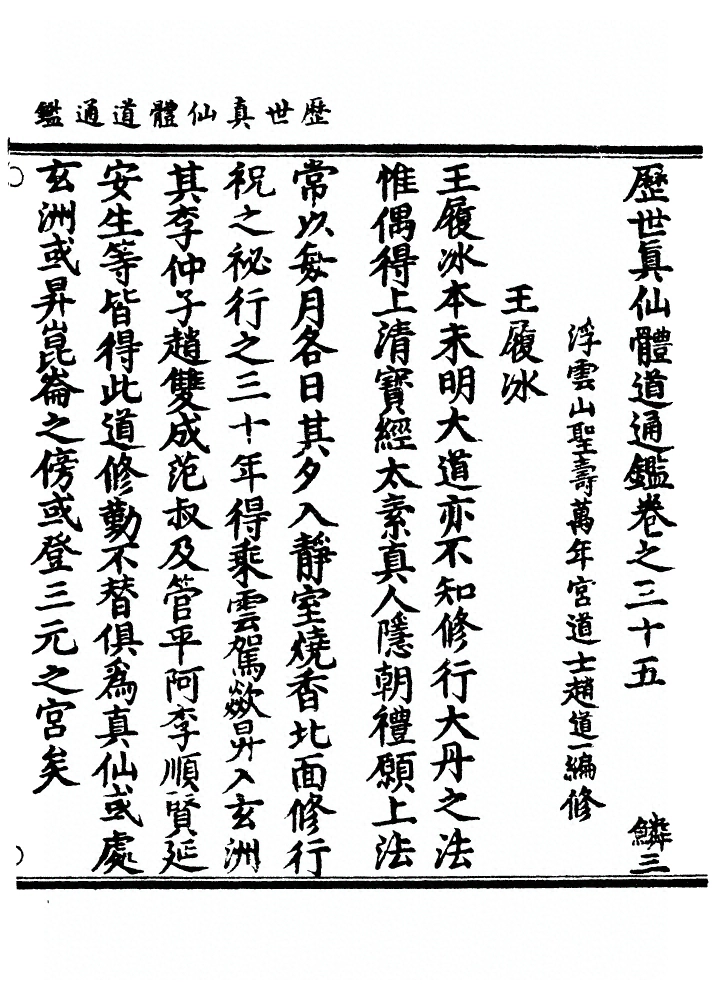 歷世真仙體道通鑑
歷世真仙體道通鑑卷之三十五 鱗三
浮雲山聖壽萬年宮道士趙道一編修
王履冰
王履冰本未明大道亦不知修行大丹之法
惟偶得上清寶經太素真人隱朝禮願上法
常以每月各日其夕入靜室燒香北面修行
祝之祕行之三十年得乘雲駕歘昇入玄洲
其李仲子趙雙成范叔及管平阿李順賢延
安生等皆得此道修勤不替俱為真仙或處
玄洲或昇崑崙之傍或登三元之宮矣